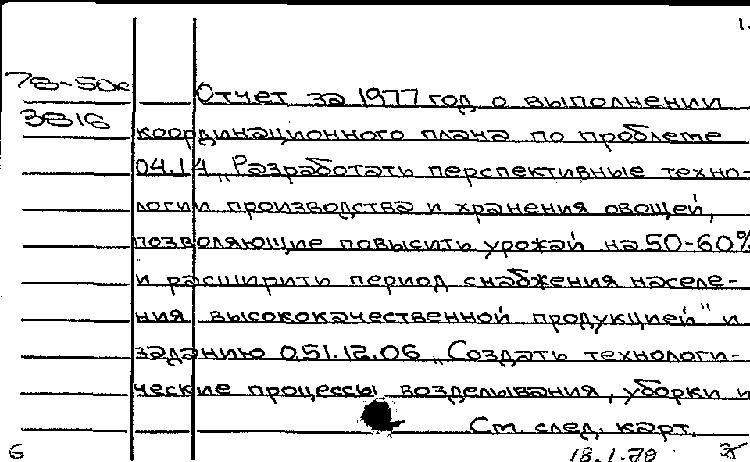 1.
78-50к
Отчет за 1977 год о выполнении
3816
координационного плана по проблеме
04.14 „Разработать перспективные техно-
логии производства и хранения овощей,
позволяющие повысить урожай на 50-60%
и расширить период снабжения населе-
ния высококачественной продукцией" и
заданию 051.12.06 „Создать технологи-
ческие процессы возделывания, уборки и
См. след. карт.
6 18.1.78